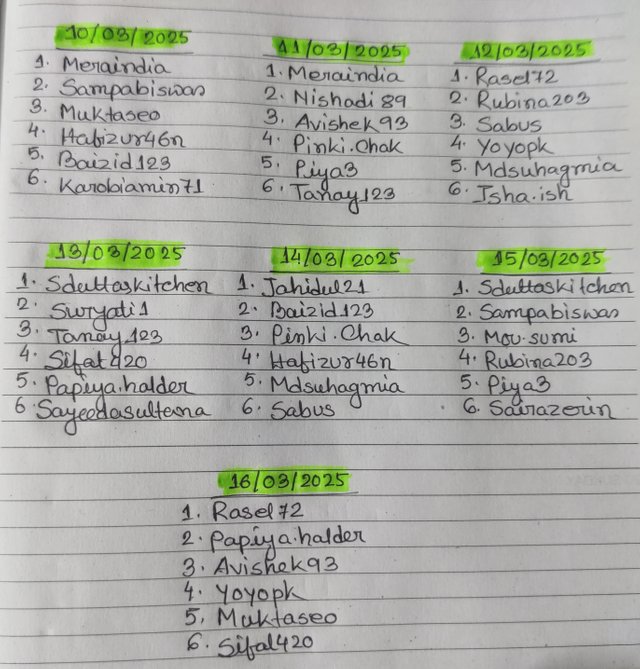 10/03/2025
1. Meraindia
2. Sampabiswas
3. Muktaseo
4. Hafizur46n
5. Baizid123
6. Karobiamin71
11/03/2025
1. Meraindia
2. Nishadi89
3. Avishek93
4. Pinki.Chak
5. Piya3
6. Tanay123
12/03/2025
1. Rasel72
2. Rubina203
3. Sabus
4. Yoyopk
5. Mdsuhagmia
6. Isha.ish
13/03/2025
1. Sduttaskitchen
2. Suryati1
3. Tanay123
4. Sifat420
5. Papiya.halder
6. Sayeedasultana
14/03/2025
1. Jahidul21
2. Baizid123
3. Pinki.Chak
4. Hafizur46n
5. Mdsuhagmia
6. Sabus
15/03/2025
1. Sduttaskitchen
2. Sampabiswas
3. Mou.sumi
4. Rubina203
5. Piya3
6. Sairazerin
16/03/2025
1. Rasel72
2. Papiya.halder
3. Avishek93
4. Yoyopk
5. Muktaseo
6. Sifat420